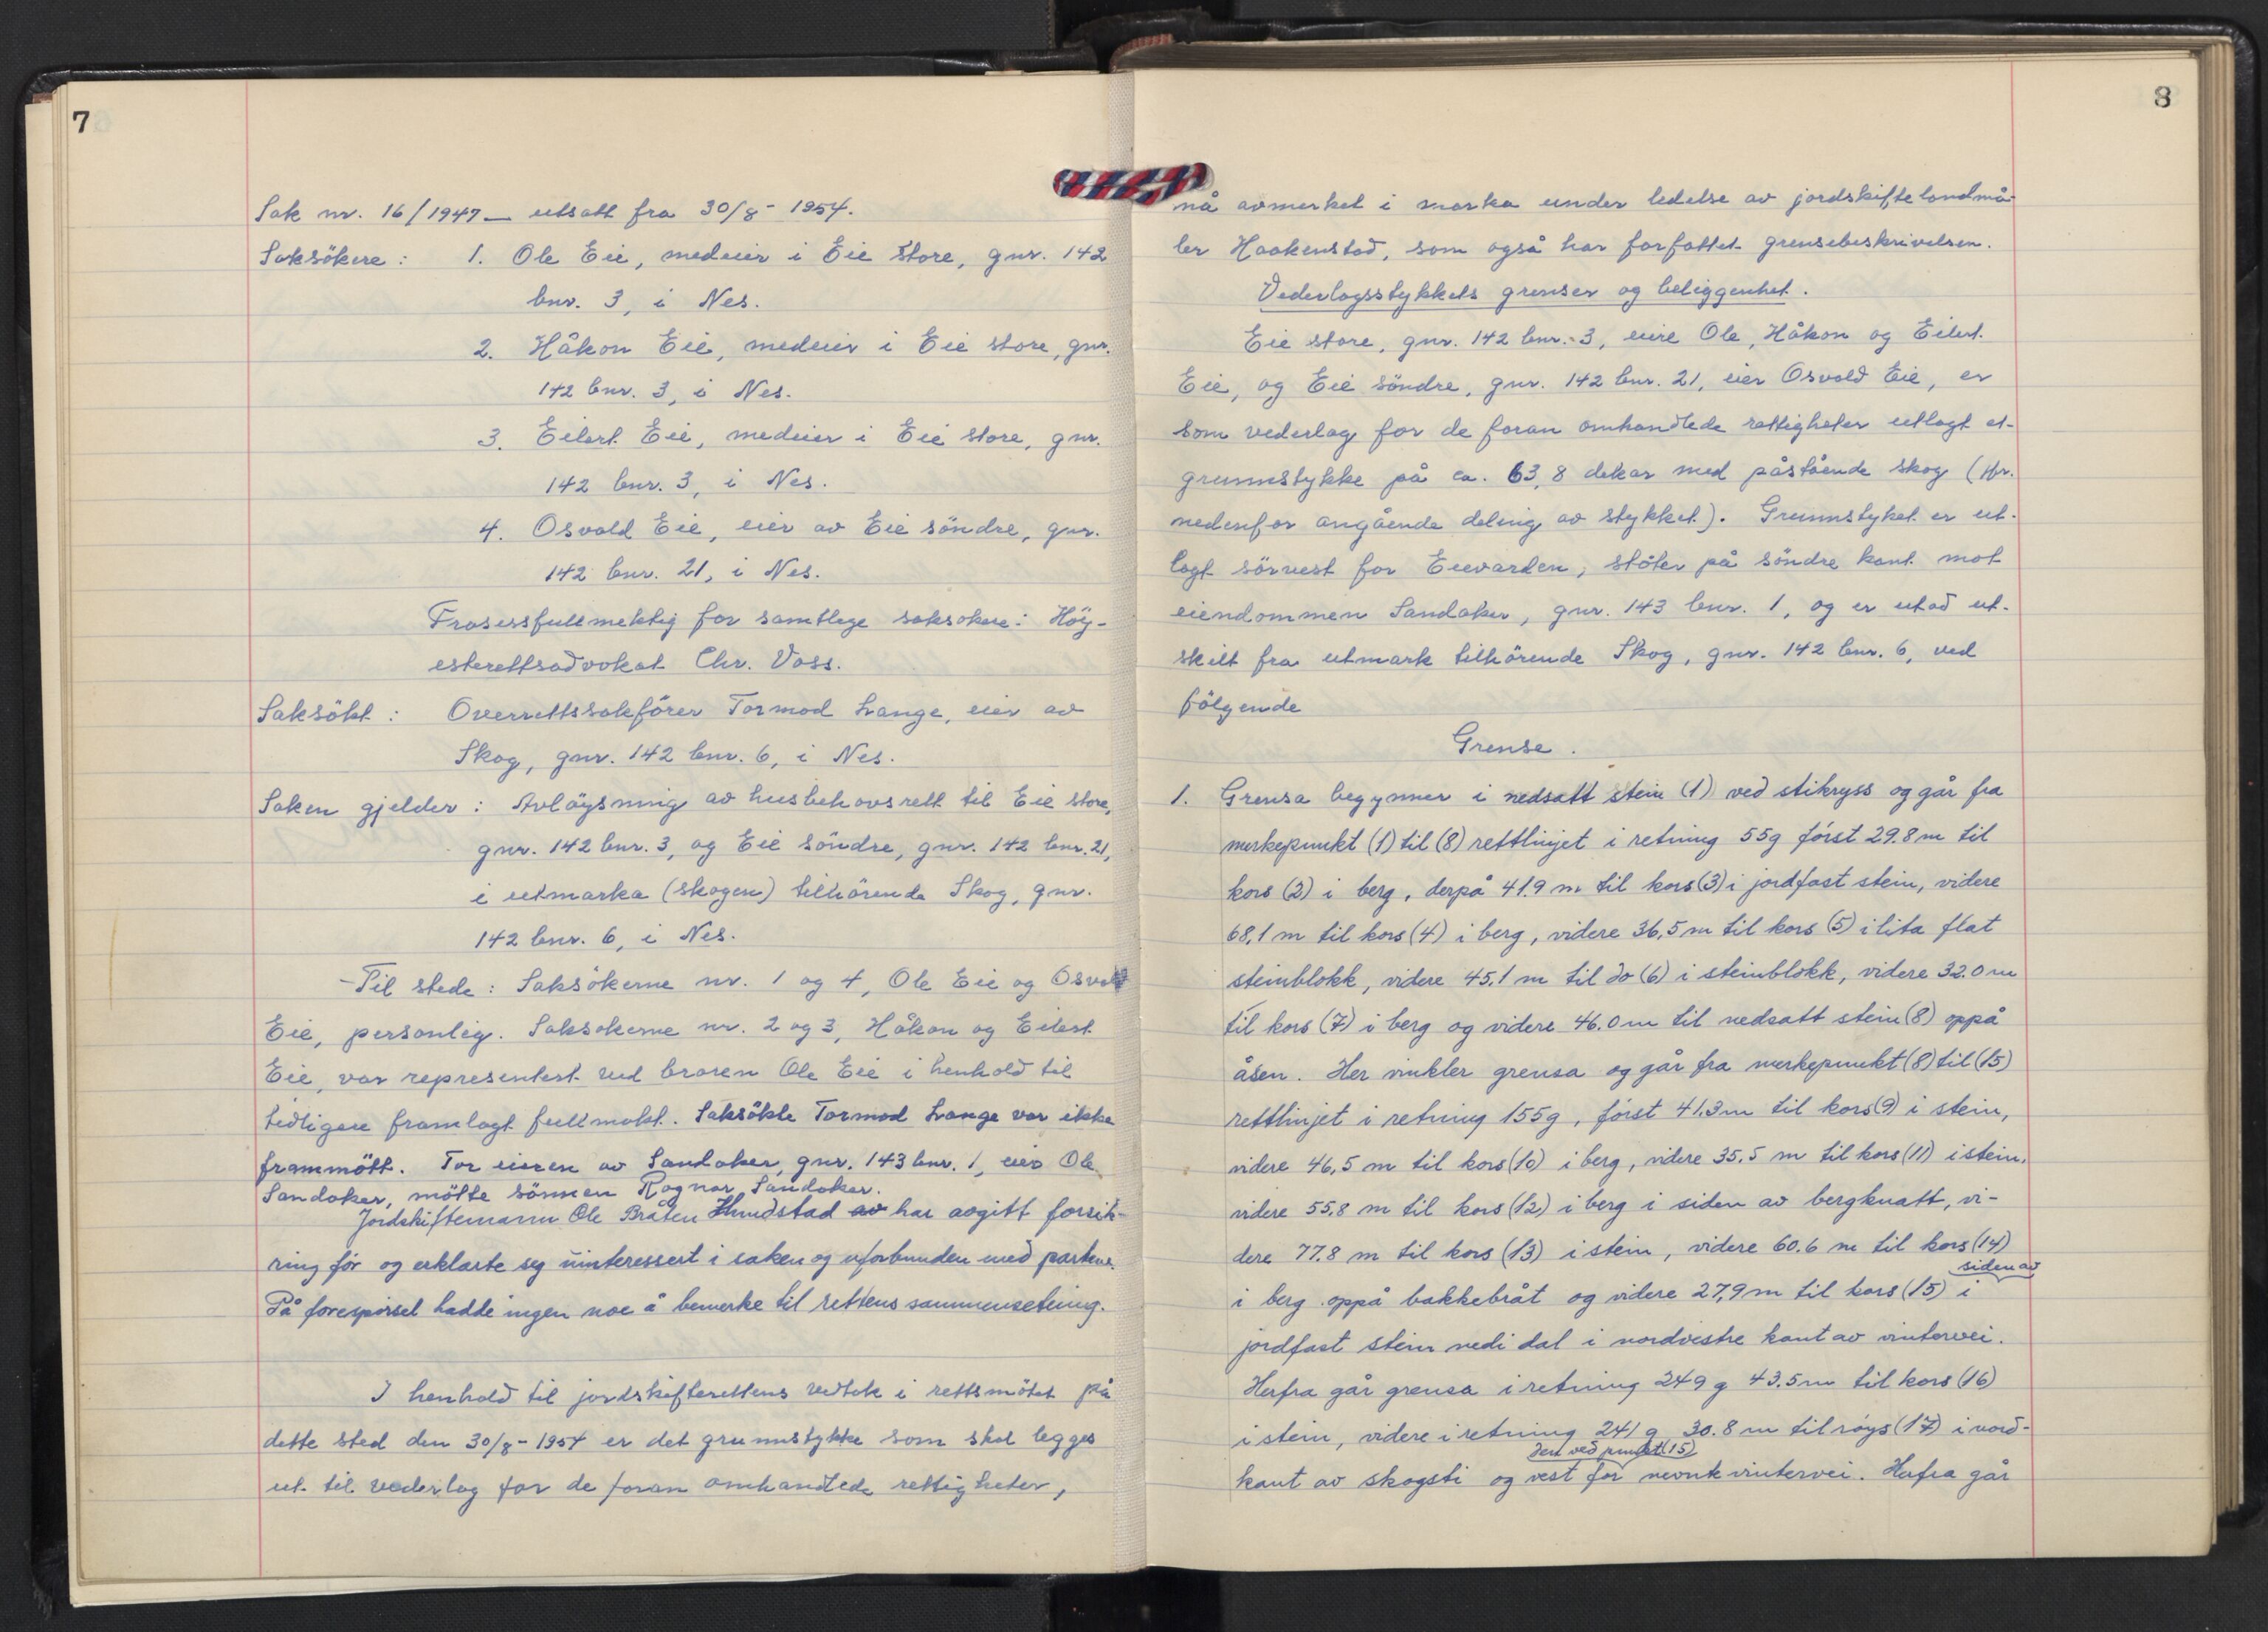 7
Sak nr. 16/1947 — utsatt fra 30/8 - 1954.
Saksökere : 1. Ole Eie, medeier i Eie store, gnr. 142
bnr. 3, i Nes.
2. Håkon Eie, medeier i Eie store, gnr.
142 bnr. 3, i Nes.
3. Eilert Eie, medeier i Eie store, gnr.
142 bnr. 3, i Nes.
4. Osvald Eie, eier av Eie söndre, gnr.
142 bnr. 21, i Nes.
Prosessfullmektig for samtlege saksokere: Höy-
esterettsadvokat Chr. Voss.
Saksökt : Overrettssakförer Tormod Lange, eier av
Skog, gnr. 142 bnr. 6, i Nes.
Saken gjelder : Avlöysning av husbehovsrett til Eie store,
gnr. 142 bnr. 3, og Eie söndre, gnr. 142 bnr. 21,
i utmarka (skogen) tilhörende Skog, gnr.
142 bnr. 6, i Nes.
Til stede : Saksökerne nr. 1 og 4, Ole Eie og Osvald
Eie, personlig. Saksokerne nr. 2 og 3, Håkon og Eilert
Eie, var representert ved broren Ole Eie i henhold til
tidligere framlagt fullmakt. Saksökte Tormod Lange var ikke
frammött. For eieren av Sandaker, gnr. 143 bnr. 1, eier Ole
Sandaker, mötte sönnen Ragnar Sandaker.
Jordskiftemann Ole Bråten Hundstad av har avgitt forsik-
ring för og erklærte seg uinteressert i saken og uforbunden med partene.
På forespørsel hadde ingen noe å bemerke til rettens sammensetning.
I henhold til jordskifterettens vedtak i rettsmötet på
dette sted den 30/8 - 1954 er det grunnstykke som skal legges
ut til vederlag for de foran omhandlede rettigheter,
8
nå avmerket i marka under ledelse av jordskiftelandmå-
ler Haakenstad, som også har forfattet grensebeskrivelsen.
Vederlagsstykkets grenser og beliggenhet.
Eie store, gnr. 142 bnr. 3, eiere Ole, Håkon og Eilert
Eie, og Eie söndre, gnr. 142 bnr. 21, eier Osvald Eie, er
som vederlag for de foran omhandlede rettigheter utlagt et
grunnstykke på ca. 63,8 dekar med påstående skog (jfr.
nedenfor angående deling av stykket). Grunnstyket er ut-
lagt sörvest for Eievarden, stöter på söndre kant mot
eiendommen Sandaker, gnr. 143 bnr. 1, og er utad ut-
skilt fra utmark tilhörende Skog, gnr. 142 bnr. 6, ved
fölgende
Grense.
1. Grensa begynner i nedsatt stein (1) ved stikryss og går fra
merkepunkt (1) til (8) rettlinjet i retning 55g först 29.8 m til
kors (2) i berg, derpå 41.9 m til kors (3) i jordfast stein, videre
68,1 m til kors (4) i berg, videre 36,5 m til kors (5) i lita flat
steinblokk, videre 45,1 m til do (6) i steinblokk, videre 32.0 m
til kors (7) i berg og videre 46.0 m til nedsatt stein (8) oppå
åsen. Her vinkler grensa og går fra merkepunkt (8) til (15)
rettlinjet i retning 155g, först 41,3 m til kors (9) i stein,
videre 46,5 m til kors (10) i berg, videre 35.5 m til kors (11) i stein,
videre 55,8 m til kors (12) i berg i siden av bergknatt, vi-
dere 77.8 m til kors (13) i stein, videre 60.6 m til kors (14)
siden av
i berg oppå bakkebråt og videre 27,9 m til kors (15) i
jordfast stein nedi dal i nordvestre kant av vintervei.
Herfra går grensa i retning 249 g 43.5 m til kors (16)
i stein, videre i retning 241 g 30.8 m til röys (17) i nord-
den ved punkt (15)
kant av skogsti og vest for nevnte vintervei. Herfra går